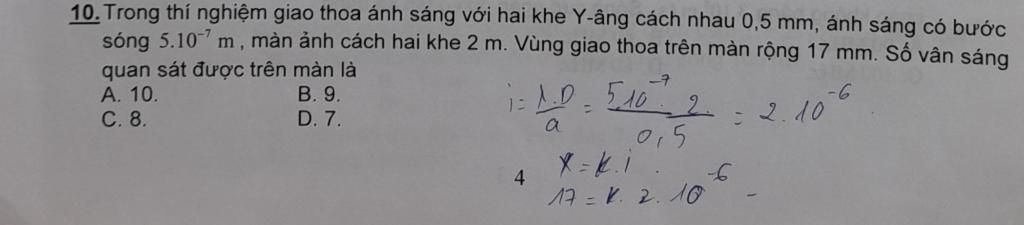 10. Trong thí nghiệm giao thoa ánh sáng với hai khe Y-âng cách nhau 0,5 mm, ánh sáng có bước
sóng 5.10⁻⁷ m , màn ảnh cách hai khe 2 m. Vùng giao thoa trên màn rộng 17 mm. Số vân sáng
quan sát được trên màn là
A. 10. B. 9.
C. 8. D. 7.
i = λ.D/a = 5.10⁻⁷. 2./0,5 = 2.10⁻⁶.
4
x = k.i.
17 = k. 2. 10⁻⁶ -